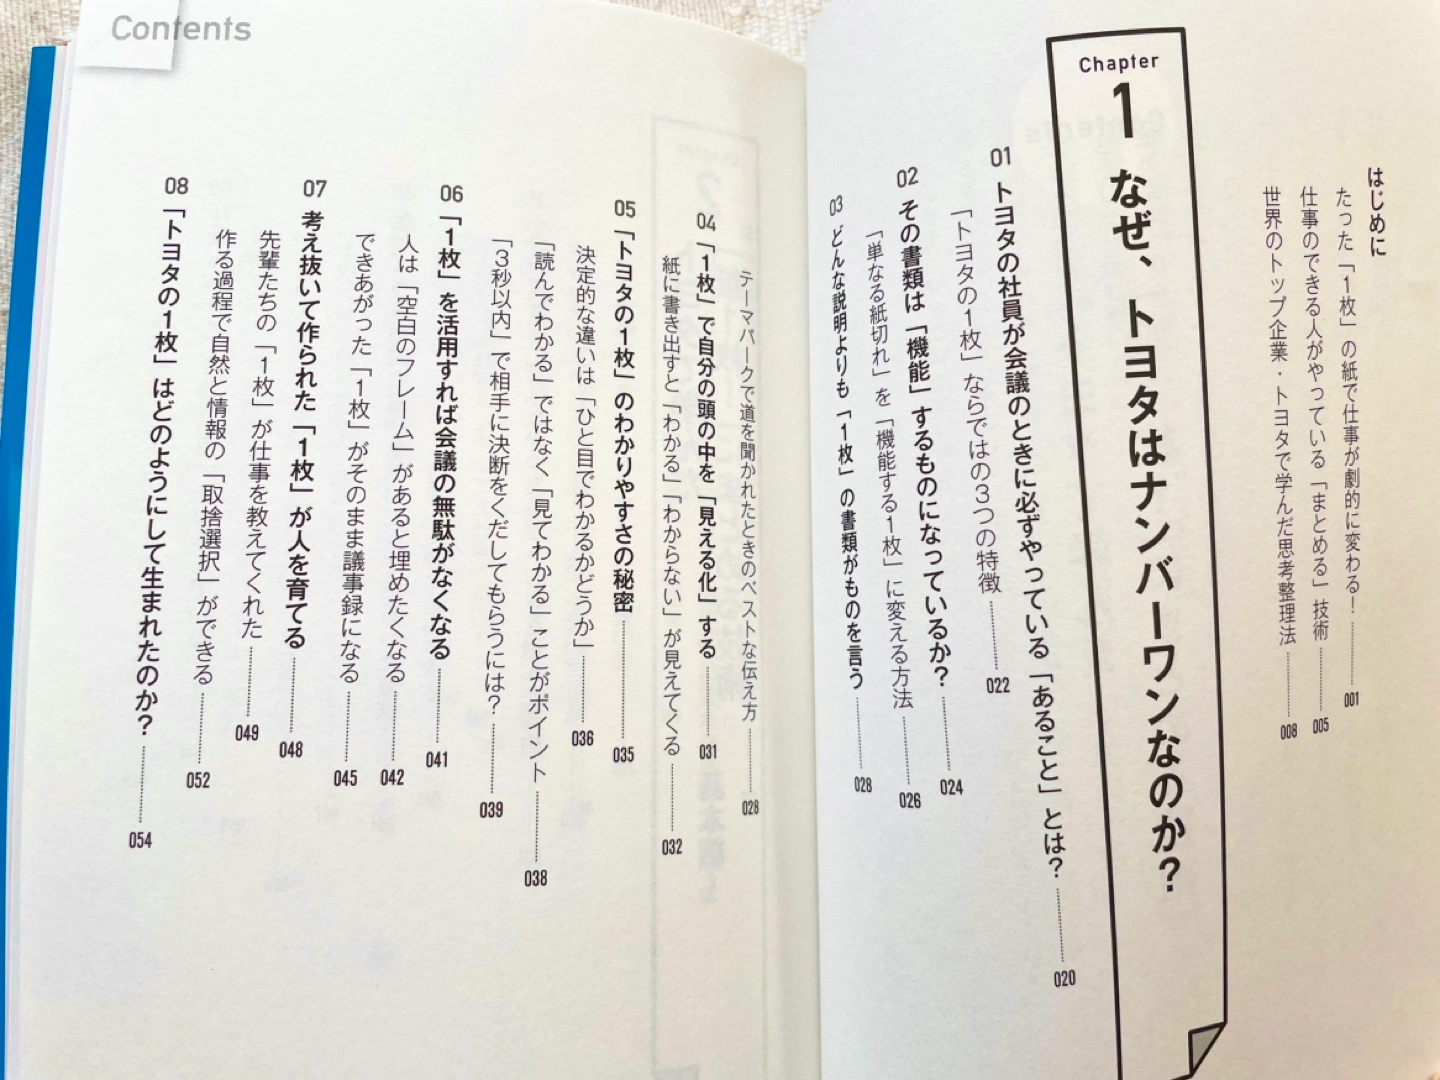 はじめに
たった「1枚」の紙で仕事が劇的に変わる！ 001
仕事のできる人がやっている「まとめる」技術 005
世界のトップ企業・トヨタで学んだ思考整理法 008
Chapter
1 なぜ、トヨタはナンバーワンなのか？
01 トヨタの社員が会議のときに必ずやっている「あること」とは？ 020
「トヨタの1枚」ならではの3つの特徴 022
02 その書類は「機能」するものになっているか？ 024
「単なる紙切れ」を「機能する1枚」に変える方法 026
03 どんな説明よりも「1枚」の書類がものを言う 028
Contents
テーマパークで道を聞かれたときのベストな伝え方 028
04 「1枚」で自分の頭の中を「見える化」する 031
紙に書き出すと「わかる」「わからない」が見えてくる 032
05 「トヨタの1枚」のわかりやすさの秘密 035
決定的な違いは「ひと目でわかるかどうか」 036
「読んでわかる」ではなく「見てわかる」ことがポイント 038
「3秒以内」で相手に決断をくだしてもらうには？ 039
06 「1枚」を活用すれば会議の無駄がなくなる 041
人は「空白のフレーム」があると埋めたくなる 042
できあがった「1枚」がそのまま議事録になる 045
07 考え抜いて作られた「1枚」が人を育てる 048
先輩たちの「1枚」が仕事を教えてくれた 049
作る過程で自然と情報の「取捨選択」ができる 052
08 「トヨタの1枚」はどのようにして生まれたのか？ 054